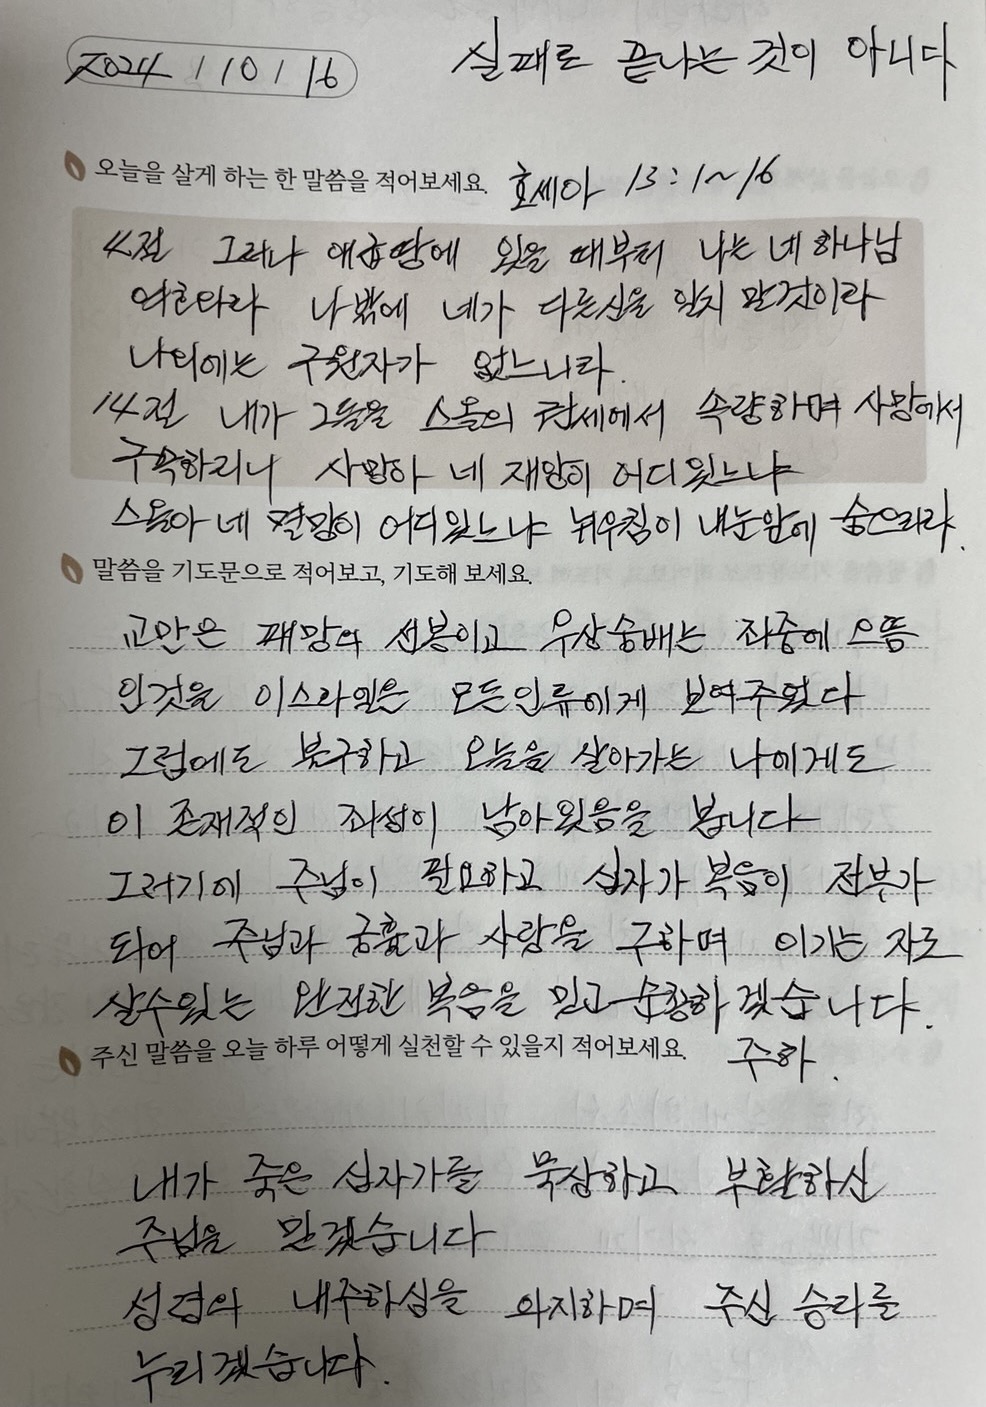 2024 / 10 / 16
실패로 끝나는 것이 아니다
오늘을 살게 하는 한 말씀을 적어보세요. 호세아 13:1~16
4절 그러나 애굽땅에 있을 때부터 나는 네 하나님
여호와라 나밖에 네가 다른신을 알지 말것이라
나외에는 구원자가 없느니라.
14절 내가 그들을 스올의 권세에서 속량하며 사망에서
구속하리니 사망아 네 재앙이 어디있느냐
스올아 네 멸망이 어디있느냐 뉘우침이 내눈앞에 숨으리라.
말씀을 기도문으로 적어보고, 기도해 보세요.
교만은 패망의 선봉이고 우상숭배는 죄중에 으뜸
인것을 이스라엘은 모든인류에게 보여주었다
그럼에도 불구하고 오늘을 살아가는 나에게도
이 존재적인 죄성이 남아있음을 봅니다
그러기에 주님이 필요하고 십자가 복음이 전부가
되어 주님과 긍휼과 사랑을 구하며 이기는 자로
살수있는 완전한 복음을 믿고 순종하겠습니다.
주신 말씀을 오늘 하루 어떻게 실천할 수 있을지 적어보세요. 주하.
내가 죽은 십자가를 묵상하고 부활하신
주님을 믿겠습니다
성령의 내주하심을 의지하며 주신 승리를
누리겠습니다.